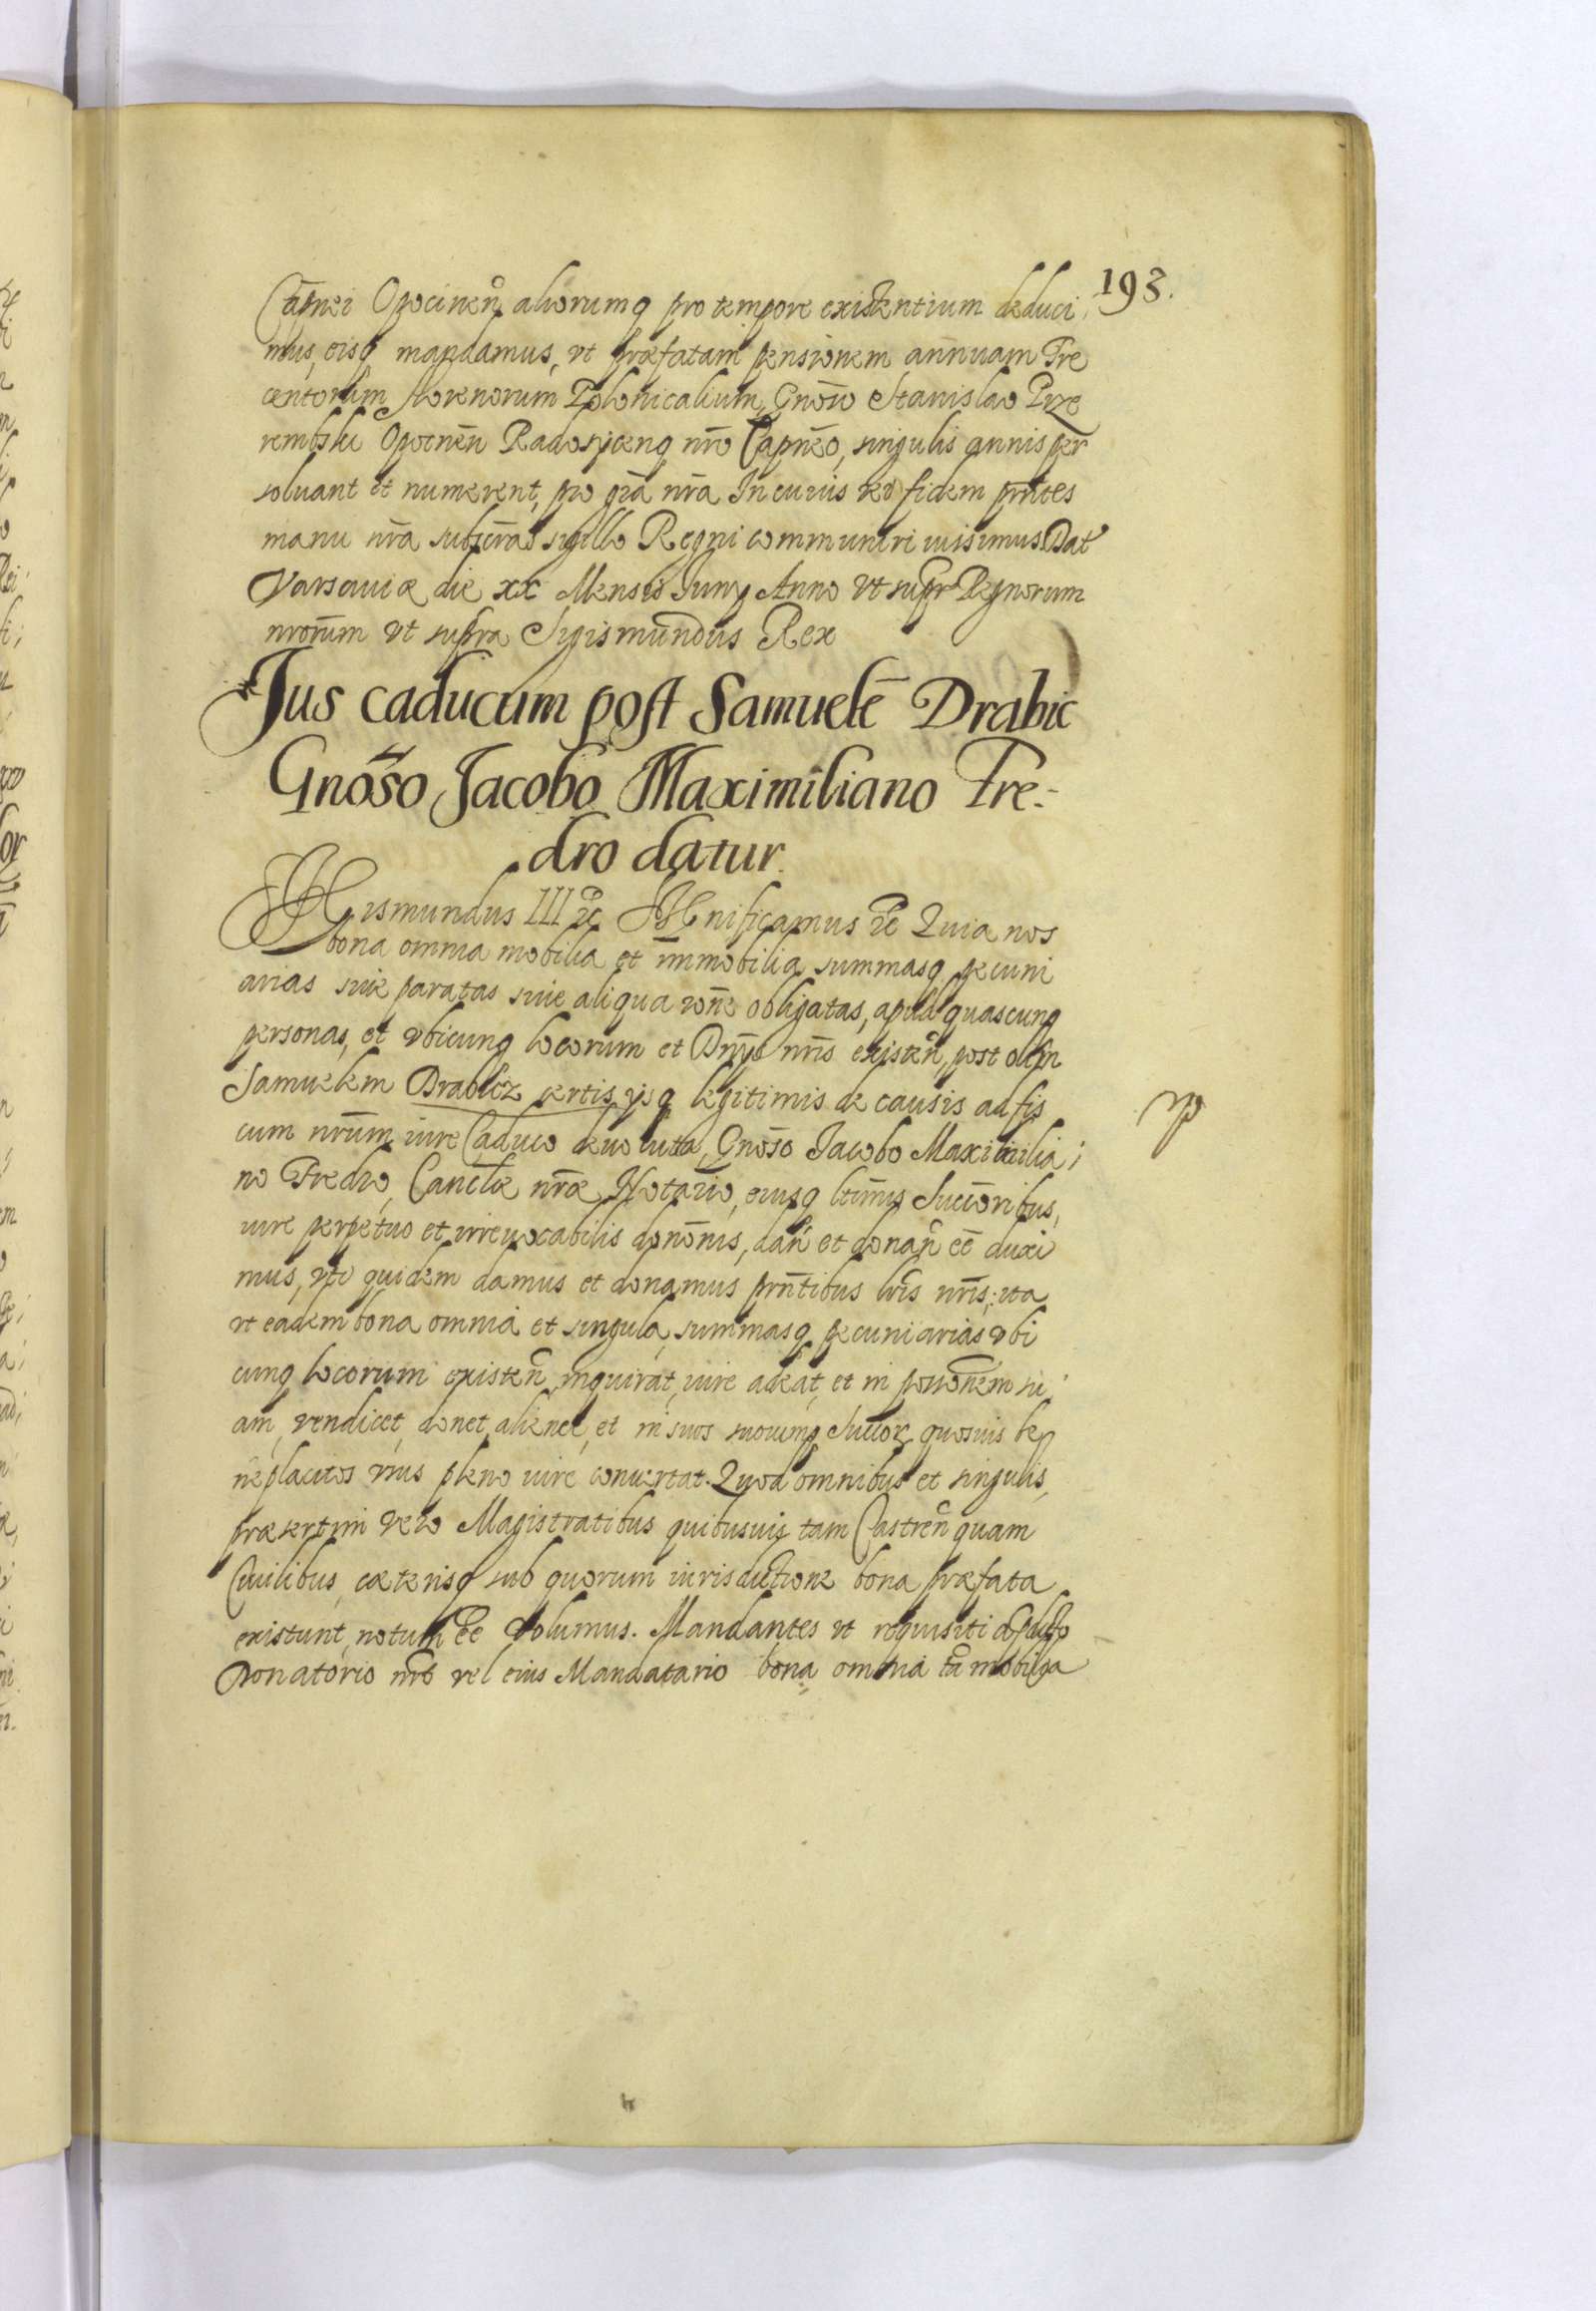 193.
Capnei Opocinen aliorumq pro tempore existentium deduci
mus, eisq mandamus, vt præfatam pensionem annuam Tre
centorum florenorum Polonicalium, Gnoso Stanislao Prze
rembski Opocnen Radosicenq nro Capneo, singulis annis per
soluant et numerent, pro gra nra In cuius rei fidem prntes
manu nra subscras sigillo Regni communiri iussimus Dat
Varsauiæ die xx Mensis Iuny Anno vt supr Regnorum
nrorum vt supra Sigismundus Rex
Jus caducum post Samuelē Drabic
Gnoso Jacobo Maximiliano Fre-
dro datur.
Sigismundus III etc Significamus etc Quia nos
bona omnia mobilia et immobilia summasq pecuni
arias siue paratas siue aliqua rone obligatas, apud quascunq
personas, et vbicunq locorum et Dnys nris existen, post olim
Samuelem Drabicz certis ysq legitimis de causis ad fis
cum nrum iure Caduco deuoluta, Gnoso Iacobo Maximilia
no Fredro, Cancllæ nræ Notario, eiusq ltimis Succoribus,
iure perpetuo et irreuocabilis dononis, dan et donan ēē duxi
mus, vti quidem damus et donamus prntibus lris nris, ita
vt eadem bona omnia et singula, summasq pecuniarias vbi
cunq locorum existen, inquirat, iure adeat, et in possonem su
am, vendicet, donet, alienet, et in suos suorumq Succor quosuis be
neplacitos vsus pleno iure conuertat. Quod omnibus et singulis,
præsertim vero Magistratibus quibusuis tam Castren quam
Ciuilibus cæterisq sub quorum iurisdictione bona præfata
existunt, notum ēē volumus. Mandantes vt requisiti
Donatorio nro vel eius Mandatario bona omnia tā mobilia